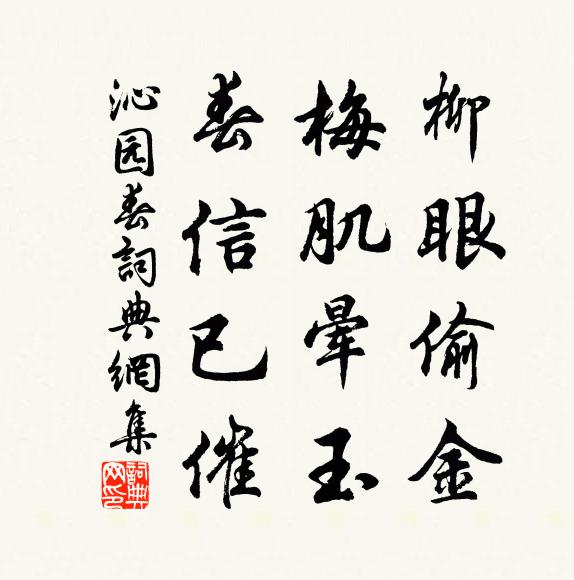 柳眼偷金
梅肌暈玉
春信已催
沁园春詞典網集
詞典网印